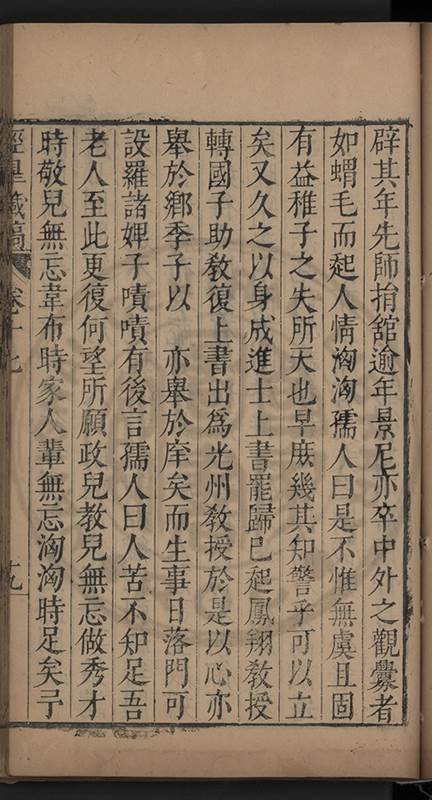 辟其年先師捐舘逾年景尼亦卒中外之觀釁者
如蝟毛而起人情洶洶孺人曰是不惟無虞且固
有益稚子之失所天也早庶幾其知警乎可以立
矣又久之以身成進士上書罷歸已起鳳翔教授
轉國子助教復上書出爲光州教授於是以心亦
舉於鄉季子以 亦舉於庠矣而生事日落門可
設羅諸婢子嘖嘖有後言孺人曰人苦不知足吾
老人至此更復何望所願政兒教兒無忘做秀才
時敬兒無忘韋布時家人輩無忘洶洶時足矣予
涇臯藏稿 卷十七 十九